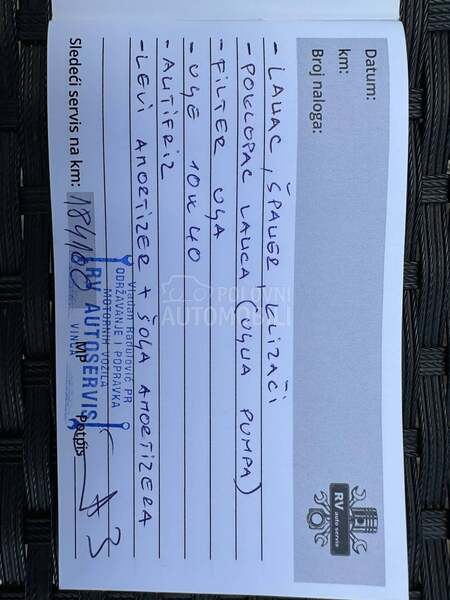 Datum:
km:
Broj naloga:
RV
auto servis
- LANAC, ŠPANER, KLIZAČI
- POKLOPAC LANCA (UQNA PUMPA)
- FILTER UQA
- UQE 10W40
- ANTIFRIZ
- LEVI AMORTIZER + ŠOQA AMORTIZERA
POLOVNI
AUTOMOBILI
Sledeći servis na km: 184100
MP
potpis
Vladan Radulović PR
ODRŽAVANJE I POPRAVKA
MOTORNIH VOZILA
RV AUTOSERVIS
VINČA